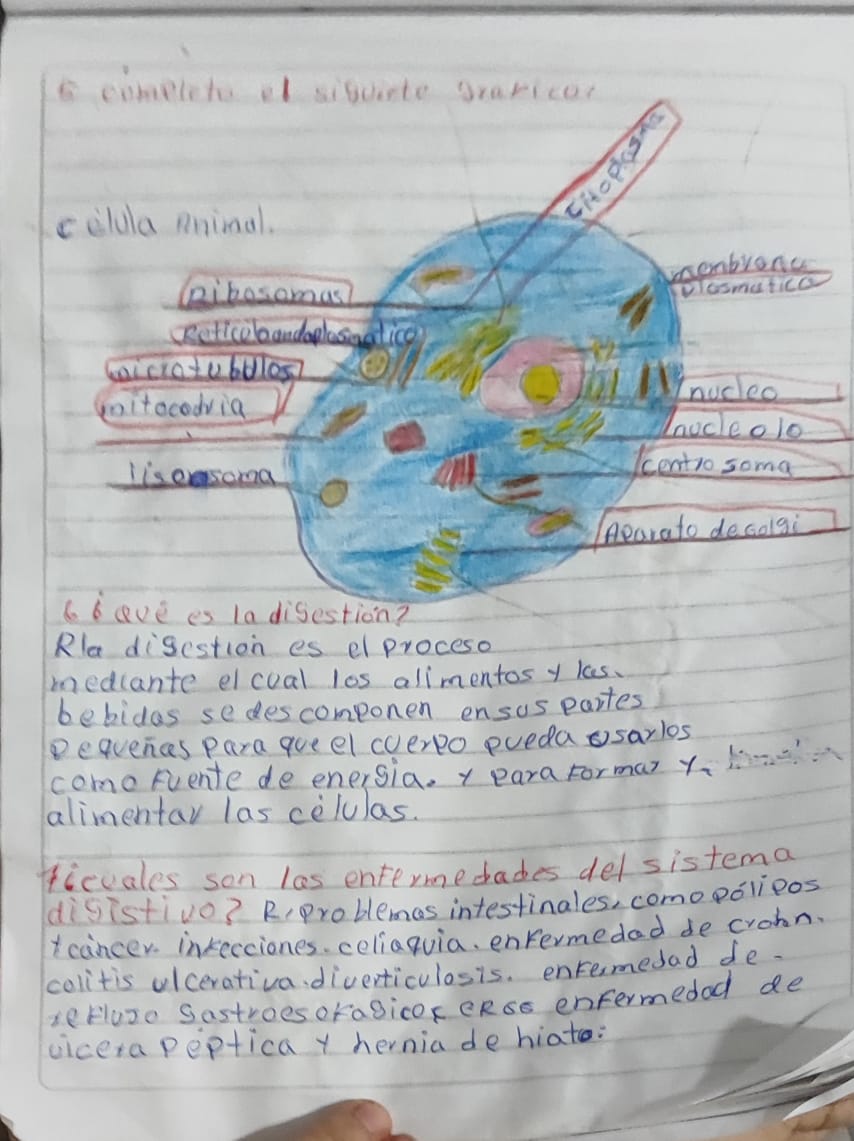 5 completo el siguiete graficor
citoplasma
célula Animal.
membrana
plosmatica
Ribosomas
Reticoloandoplasmatico
microtubulos
nucleo
mitocodria
nucleolo
lisensoma
centrosoma
Aparato de golgi
6 ¿ qué es la disestión?
R la disestión es el proceso
mediante el cual los alimentos y las.
bebidas se descomponen en sus partes
pequeñas para que el cuerpo pueda usarlos
como fuente de energia. y para formar y
alimentar las células.
7 ¿cuales son las enfermedades del sistema
disistivo? R, problemas intestinales, como pólipos
y cáncer. infecciones. celiaquia. enfermedad de crohn.
colitis ulcerativa. diverticulosis. enfemedad de.
reflujo gastroesofagico enfermedad de
úlcera péptica y hernia de hiato: